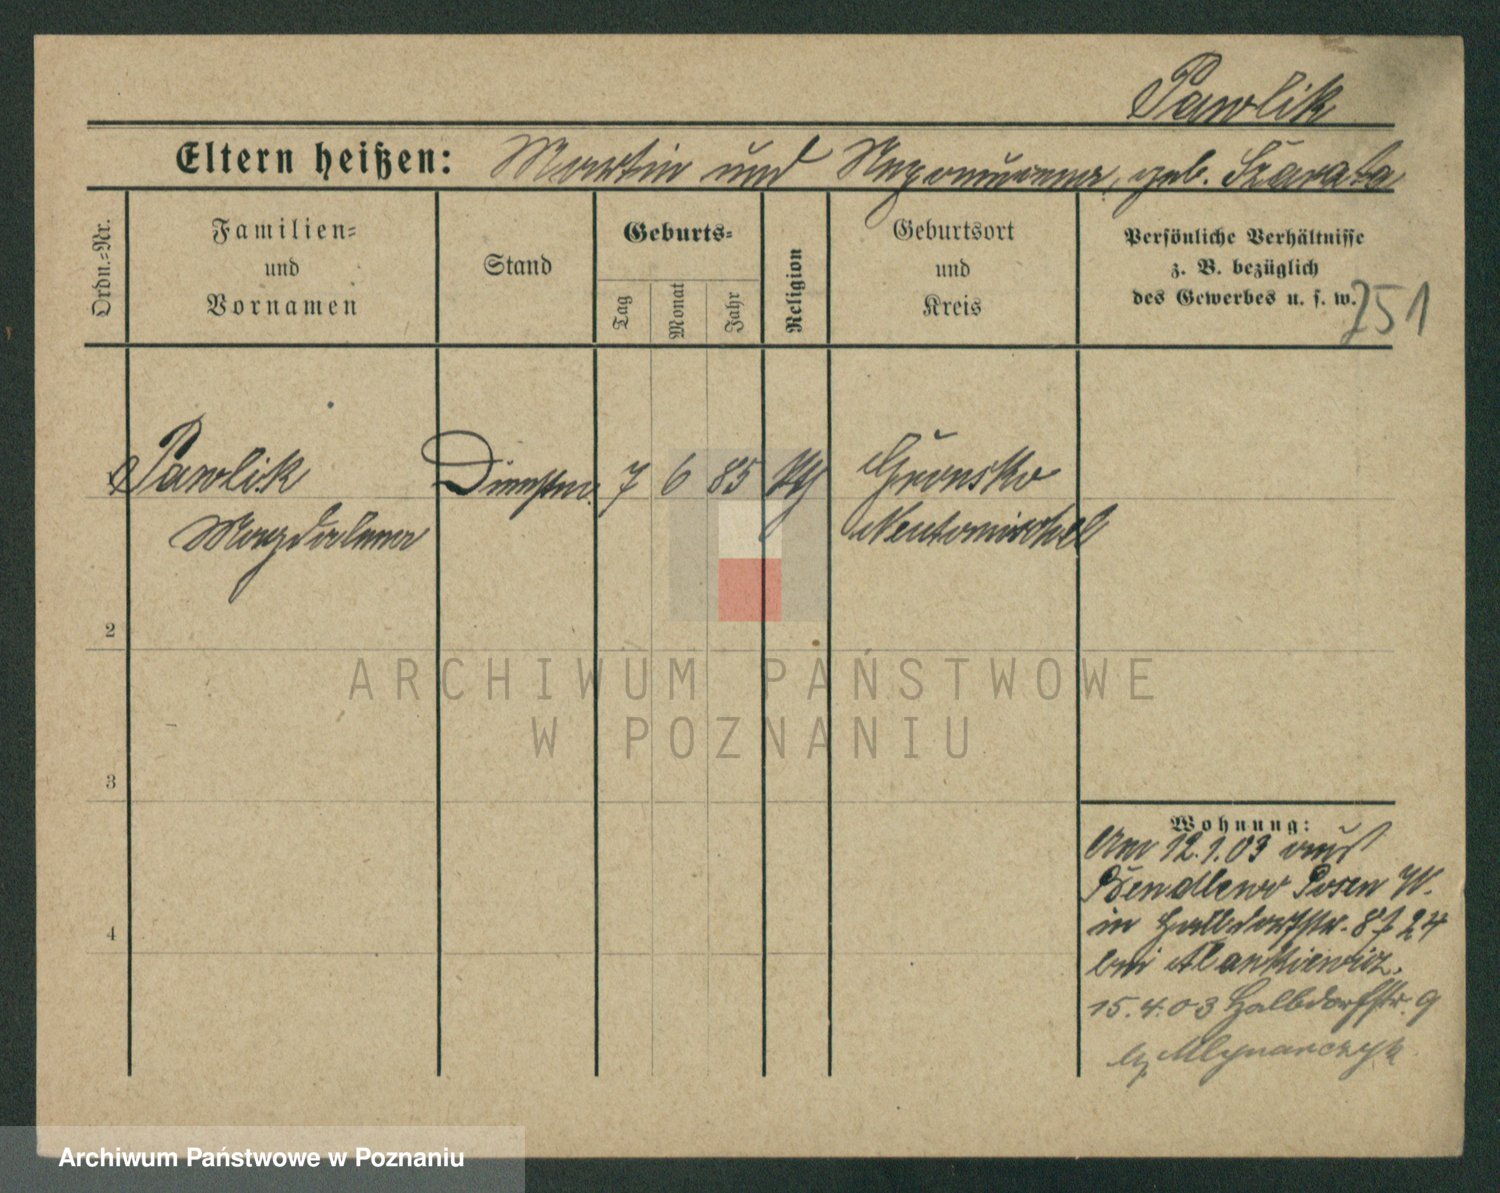 Pawlik
Eltern heißen: Martin und geb. Szarata
Ordn.-Nr.
Familien-
und
Vornamen
Stand
Geburts-
Tag
Monat
Jahr
Religion
Geburtsort
und
Kreis
Persönliche Verhältnisse
z. B. bezüglich
des Gewerbes u. s. w.
251
Pawlik Dienstm. 7 6 85 Gronsko
Magdalena Neutomischel
2
3
4
Wohnung:
Am 12.1.03 aus
Bendlewo Posen W.
in Halbdorfstr. 8 24
bei Mankiewicz.
15.4.03 Halbdorfstr. 9
Mlynarczyk
ARCHIWUM PAŃSTWOWE
W POZNANIU
Archiwum Państwowe w Poznaniu